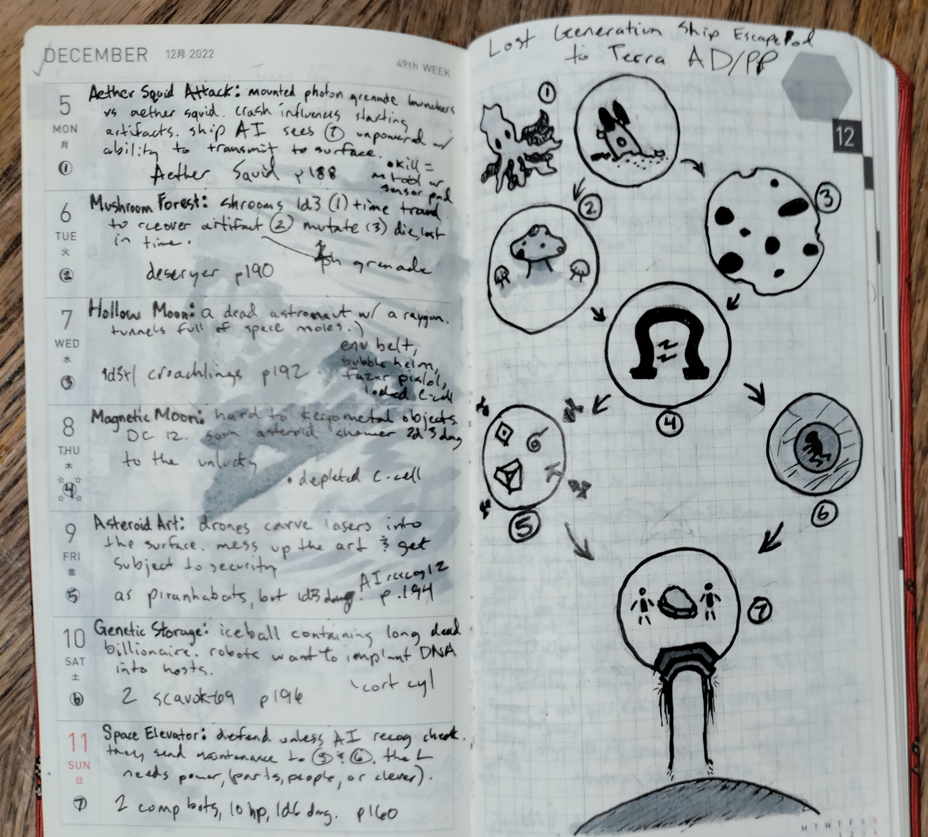 DECEMBER 12月 2022
49th WEEK
5 MON 月 ①
Aether Squid Attack: mounted photon grenade launchers
vs aether squid. crash influences starting
artifacts. ship AI sees ⑦ unpowered w/
ability to transmit to surface.
Aether Squid p188
• kill =
sensor pad
6 TUE 火 ②
Mushroom Forest: shrooms 1d3 (1) time travel
to recover artifact (2) mutate (3) die, lost
in time.
ph grenade
deseryer p190
7 WED 水 ③
Hollow Moon: a dead astronaut w/ a raygun.
tunnels full of space moles.
env belt,
bubble helm,
fazer pistol,
loaded c-cell
1d3+1 croachlings p192
8 THU 木 ④
Magnetic Moon: hard to keep metal objects
DC 12. asteroid shower 2d3 dmg
to the unlucky
• depleted c-cell
9 FRI 金 ⑤
Asteroid Art: drones carve lasers into
the surface. mess up the art & get
subject to security
AI recog 12
as piranhabots, but 1d3 dmg p.194
10 SAT 土 ⑥
Genetic Storage: iceball containing long dead
billionaire. robots want to implant DNA
into hosts.
cort cyl
2 scavok-69 p196
11 SUN 日 ⑦
Space Elevator: defend unless AI recog check.
they send maintenance to ⑤ & ⑥. the L
needs power, (parts, people, or clever).
2 comp bots, 10 hp, 1d6 dmg. p160
Lost Generation Ship Escape Pod
to Terra AD/PP
12
①
②
③
④
⑤
⑥
⑦
M T W T F S S